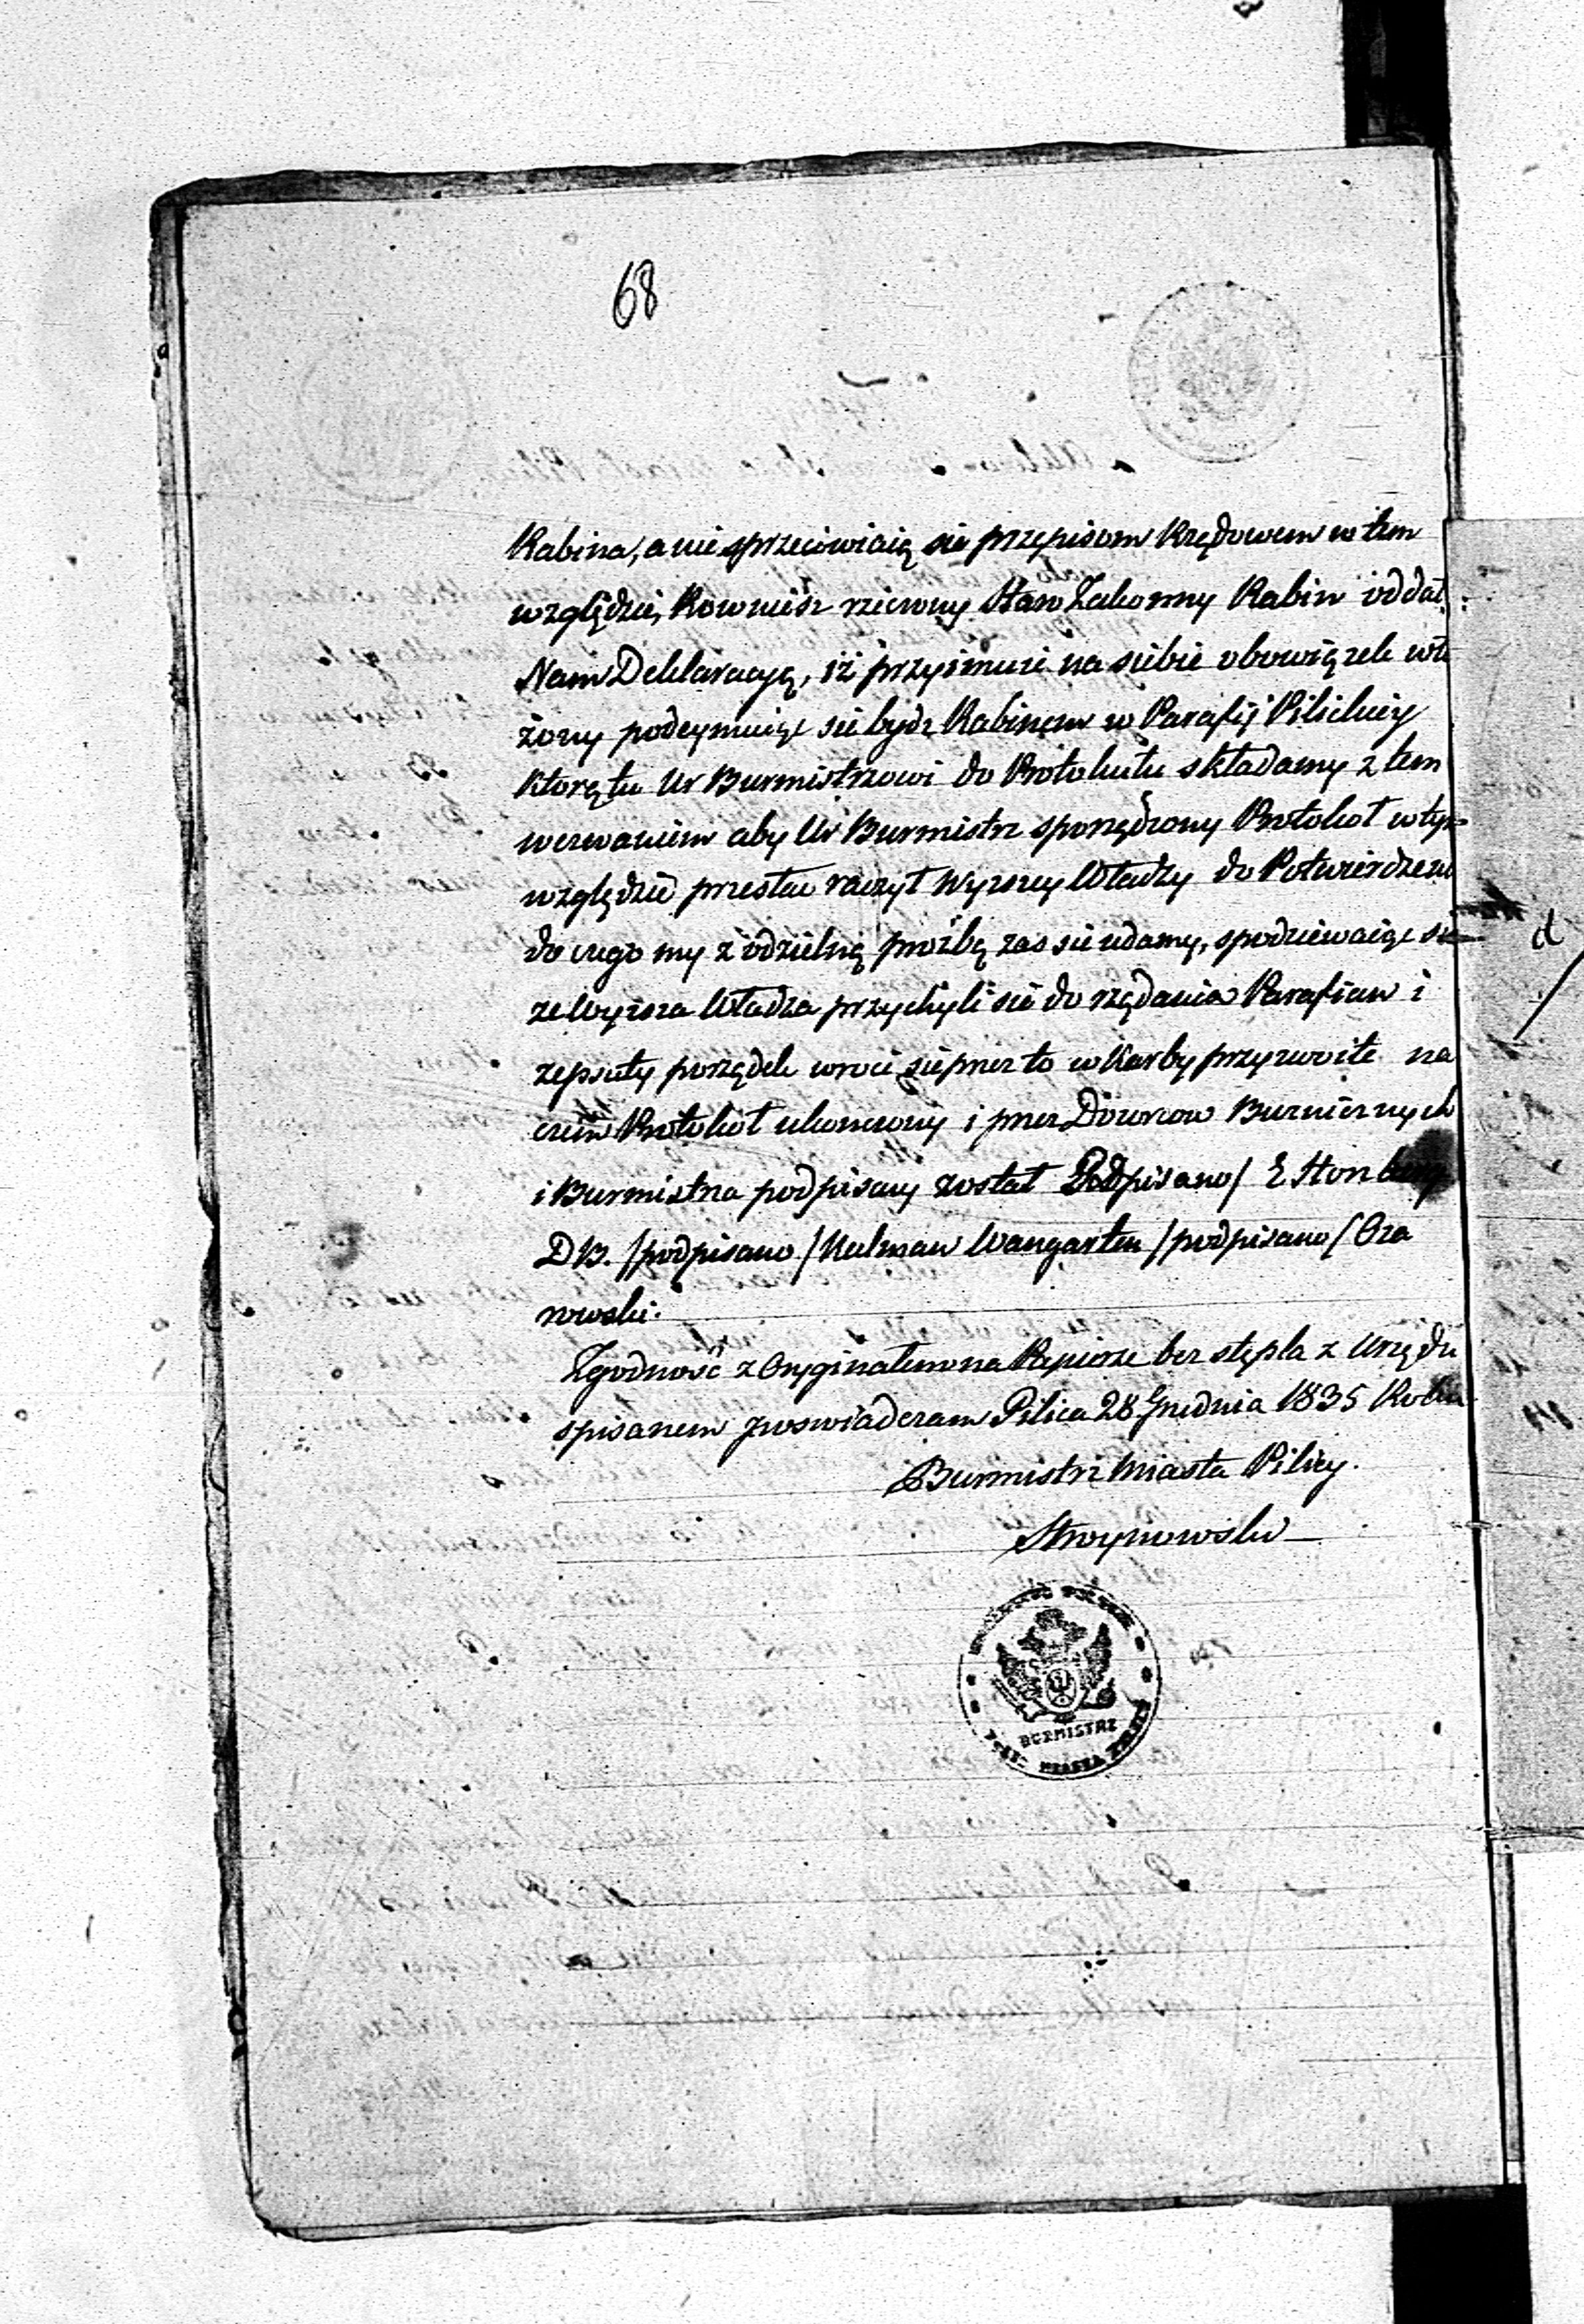 68
Rabina, a nie sprzeciwiaią sie przepisom Rządowem w tem
względzie, Rownież rzeczony Stan Zakonny Rabin oddał
Nam Deklaracyą, iż przyimuie na siebie obowiązek wło
żony podeymuiąc sie bydz Rabinem w Parafij Pilickiey
ktorą tu Ur Burmistrzowi do Protokułu składamy z tem
wezwaniem aby Ur Burmistrz sporządzony Protokoł w tym
względzie przesłac raczył Wyzszey Władzy do Potwierdzenia
do czego my z odzielną proźbą zas sie udamy, spodziewaiąc sie
ze Wyzsza Władza przychyli sie do rządania Parafian i
zepsuty porządek wroci sie przez to w Karby przyzwoite na
czem Protokoł ukonczony i przez Dozorcow Bużnicznych
i Burmistrza podpisany został Podpisano/ E Honberg
DB. /podpisano/ Kalman Wangarten /podpisano/ Oza
rowski.
Zgodność z Oryginałem na Papierze bez stępla z Urzędu
spisanem poswiadczam Pilica 28 Grudnia 1835 Roku
Burmistrz Miasta Pilicy.
Stroynowski
BURMISTRZ
MIASTA
d